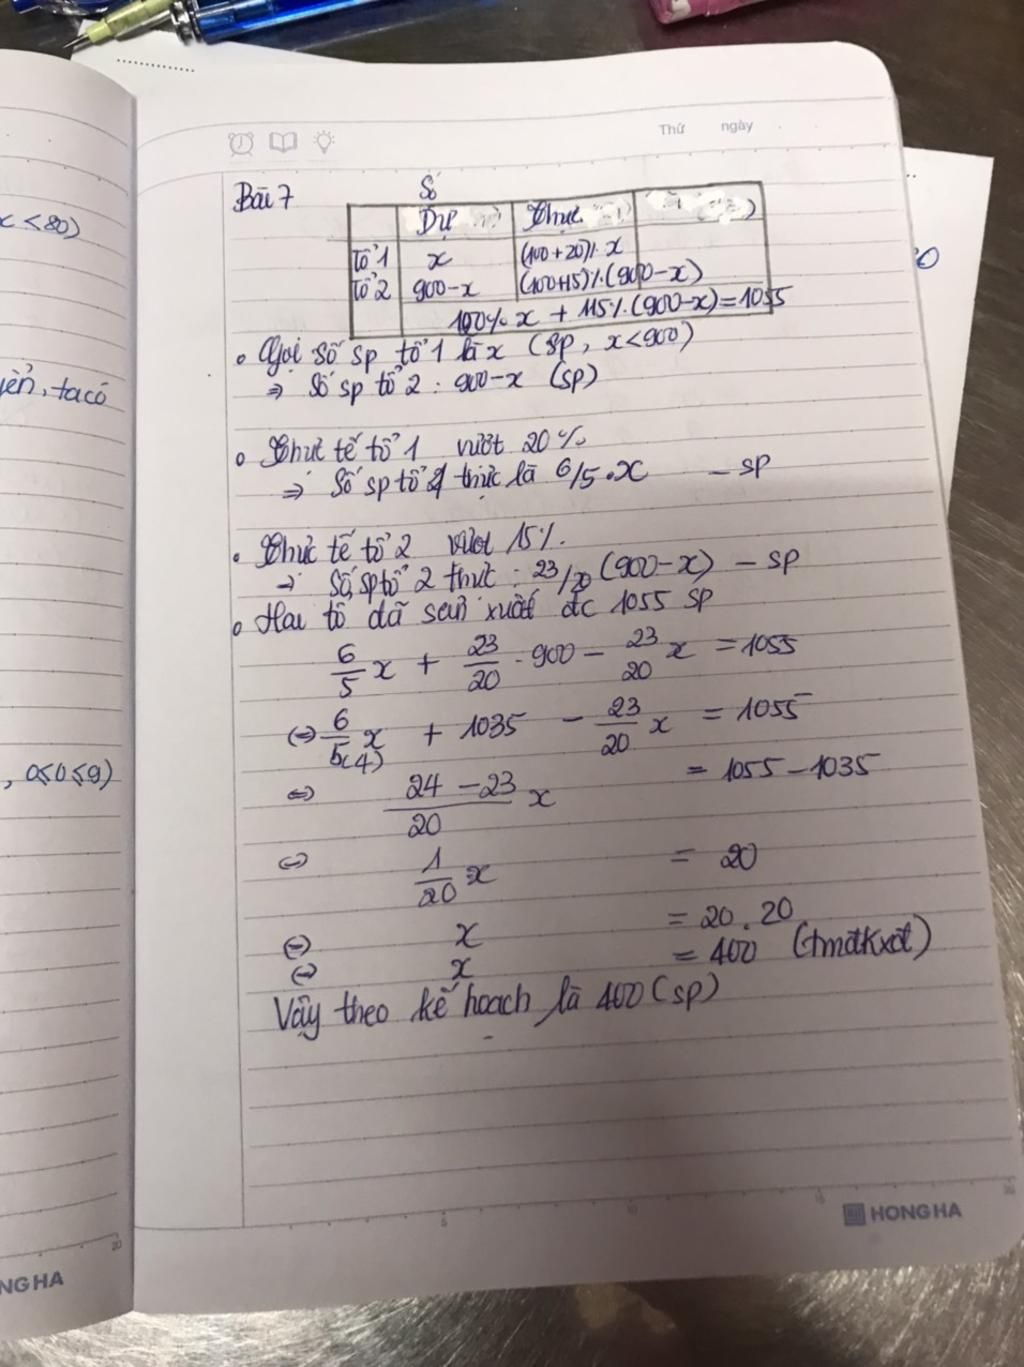 Thứ ngày
x<80)
yẻn, ta có
, 0≤0≤9)
Bài 7
Số
Dự Thực
Tổ 1 x (100+20)%. x
Tổ 2 900-x (100+15)%.(900-x)
100% x + 115%.(900-x)=1055
• Gọi số sp tổ 1 là x (sp, x<900)
⇒ Số sp tổ 2 : 900-x (sp)
• Thực tế tổ 1 vượt 20%
⇒ Số sp tổ 1 thực là 6/5.x - sp
• Thực tế tổ 2 vượt 15%.
⇒ Số sp tổ 2 thực : 23/20 (900-x) - sp
• Hai tổ đã sản xuất đc 1055 sp
6/5 x + 23/20 . 900 - 23/20 x = 1055
⇔ 6/5(4) x + 1035 - 23/20 x = 1055
⇔ 24-23/20 x = 1055-1035
⇔ 1/20 x = 20
⇔ x = 20.20
⇔ x = 400 (tmđkxđ)
Vậy theo kế hoạch là 400 (sp)
HONG HA
NG HA